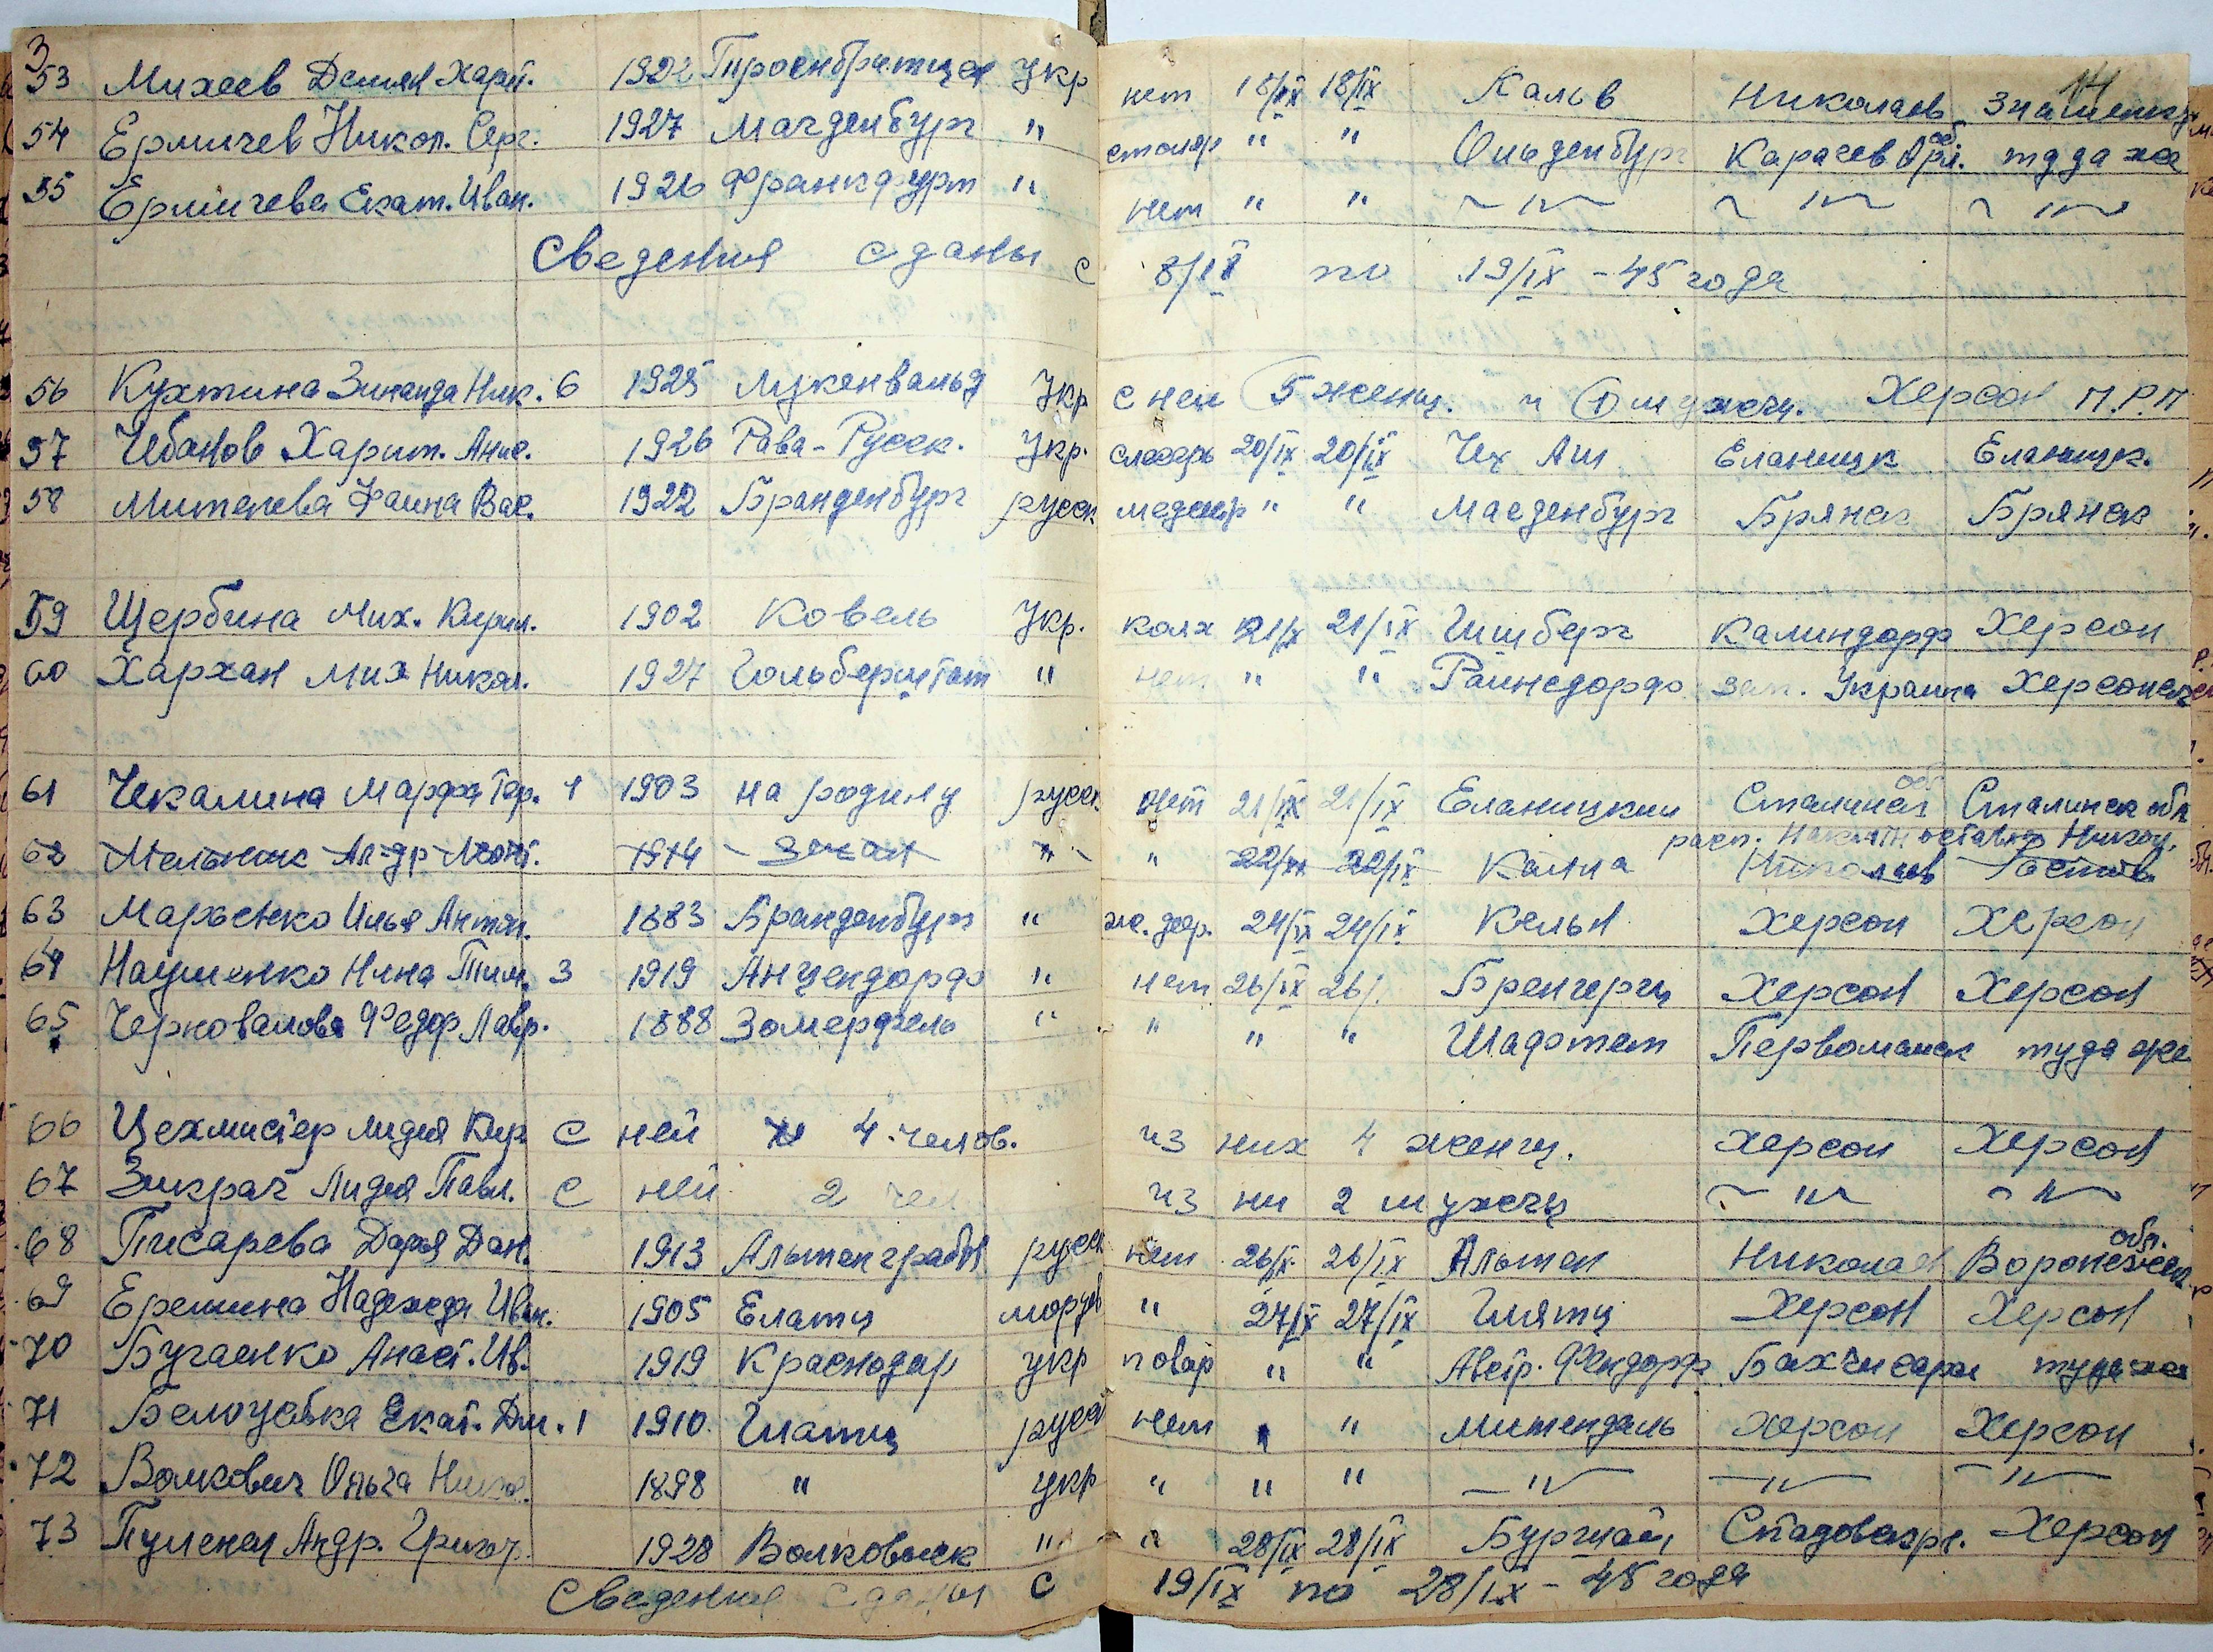 3 14
53 Михеев Демян Харит. 1922 Троенбратцея Укр нет 18/IX 18/IX Кальв Николаев Знаменку
54 Ермичев Никол. Серг. 1927 Магденбург " столяр " " Ольденбург Карачев Орл. об туда же
55 Ермичева Екат. Иван. 1926 Франкфурт " нет " " ~"~ ~"~ ~"~
Сведения сданы с 8/IX по 19/IX - 45 года
56 Кухтина Зинаида Ник. 6 1925 Лукенвальд Укр с ней 5 женщ. и 1 мужчи. Херсон П.Р.П
57 Чебанов Харит. Анис. 1926 Рава-Русск. Укр. слесарь 20/IX 20/IX Чех Аш Еланецк Еланецк.
58 Митачева Фаина Вас. 1922 Бранденбург русск медсестр " " Магденбург Брянск Брянск
59 Щербина Мих. Кирил. 1902 Ковель Укр. колх 21/IX 21/IX Гишберг Калиндорф Херсон
60 Хархан Мих Никол. 1927 Гольберштат " нет " " Райнсдорф зап. Украина Херсонск
61 Чекалина Марфа Гер. 1 1903 на родину русск нет 21/IX 21/IX Еланецкий Сталинск об. Сталинск обл
расп. оставл Никол.
62 Мельник Ал-др Леонт. 1914 " " 22/IX 22/IX Каина Николаев Ростов
63 Марьенко Илья Антон. 1883 Бранденбург " 24/IX 24/IX Кельн Херсон Херсон
64 Науменко Нина Тим. 3 1919 Анцендорф " нет 26/IX 26/. Бренгерц Херсон Херсон
65 Черновалова Федор Лавр. 1888 Зомерфель " " " " Шафтет Первомайск туда же
66 Цехмистер Лидия Кир с ней 4 челов. из них 4 женщ. Херсон Херсон
67 Зикрач Лидия Павл. с ней 2 чел из ни 2 мужчи ~"~ ~"~
68 Писарева Дарья Дан. 1913 Альтенграбов русск нет 26/IX 26/IX Альтен Николаев Воронежск обл.
69 Еремина Надежда Иван. 1905 Елатц мордов " 27/IX 27/IX Глятц Херсон Херсон
70 Бугаенко Анаст. Ив. 1919 Краснодар укр повар " " Австр. Фендорф Бахчисарай туда же
71 Белоусовка Екат. Дм. 1 1910 Глатц русск нет " " Митендаль Херсон Херсон
72 Волкович Ольга Никол. 1898 " укр " " " —"— —"— —"—
73 Пуленец Андр. Григор. 1928 Волковыск " " 28/IX 28/IX Бургштай Херсон
Сведения сданы с 19/IX по 28/IX - 45 года